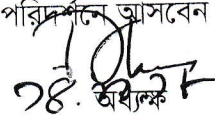 পরিদর্শনে আসবেন
১৪. অধ্যক্ষ